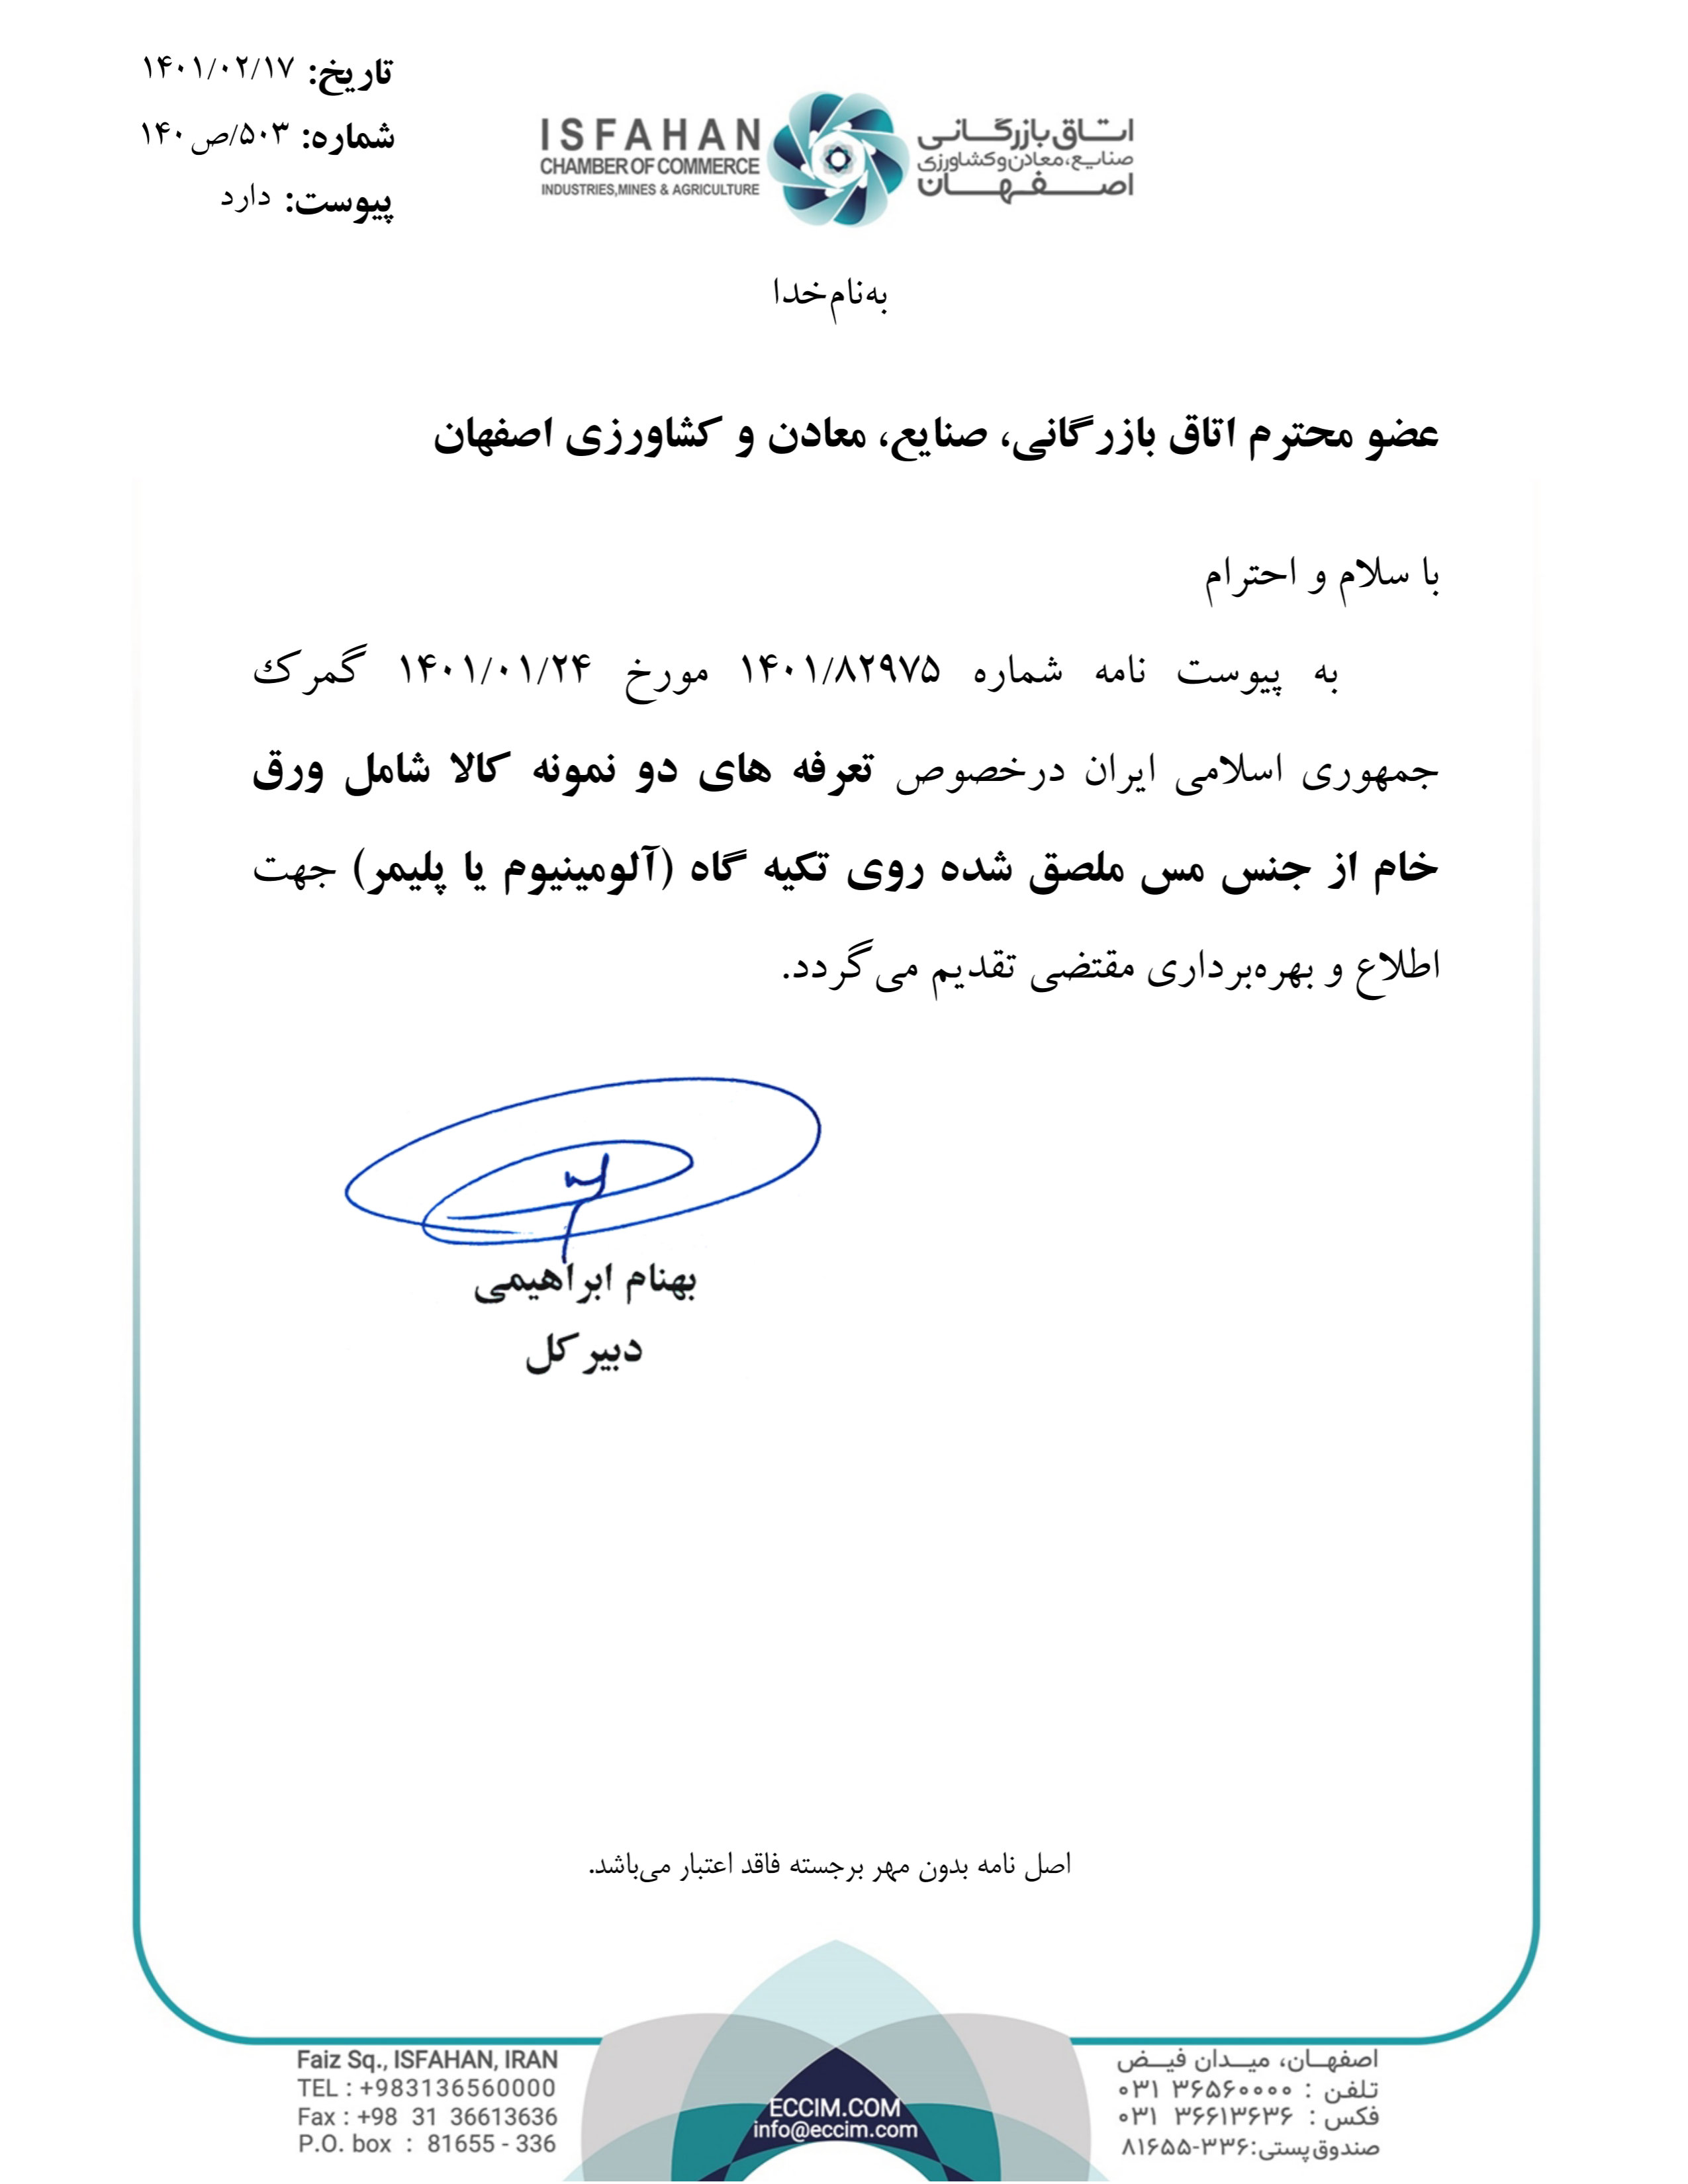 تاریخ: ۱۴۰۱/۰۲/۱۷
شماره: ۵۰۳/ص۱۴۰
پیوست: دارد
ISFAHAN
CHAMBER OF COMMERCE
INDUSTRIES,MINES & AGRICULTURE
اتاق بازرگانی
صنایع، معادن و کشاورزی
اصفهان
به‌نام‌خدا
عضو محترم اتاق بازرگانی، صنایع، معادن و کشاورزی اصفهان
با سلام و احترام
به پیوست نامه شماره ۱۴۰۱/۸۲۹۷۵ مورخ ۱۴۰۱/۰۱/۲۴ گمرک
جمهوری اسلامی ایران درخصوص تعرفه های دو نمونه کالا شامل ورق
خام از جنس مس ملصق شده روی تکیه گاه (آلومینیوم یا پلیمر) جهت
اطلاع و بهره‌برداری مقتضی تقدیم می‌گردد.
بهنام ابراهیمی
دبیر کل
اصل نامه بدون مهر برجسته فاقد اعتبار می‌باشد.
Faiz Sq., ISFAHAN, IRAN
TEL : +983136560000
Fax : +98 31 36613636
P.O. box : 81655 - 336
ECCIM.COM
info@eccim.com
اصفهان، میدان فیض
تلفن : ۰۳۱ ۳۶۵۶۰۰۰۰
فکس : ۰۳۱ ۳۶۶۱۳۶۳۶
صندوق پستی: ۸۱۶۵۵-۳۳۶